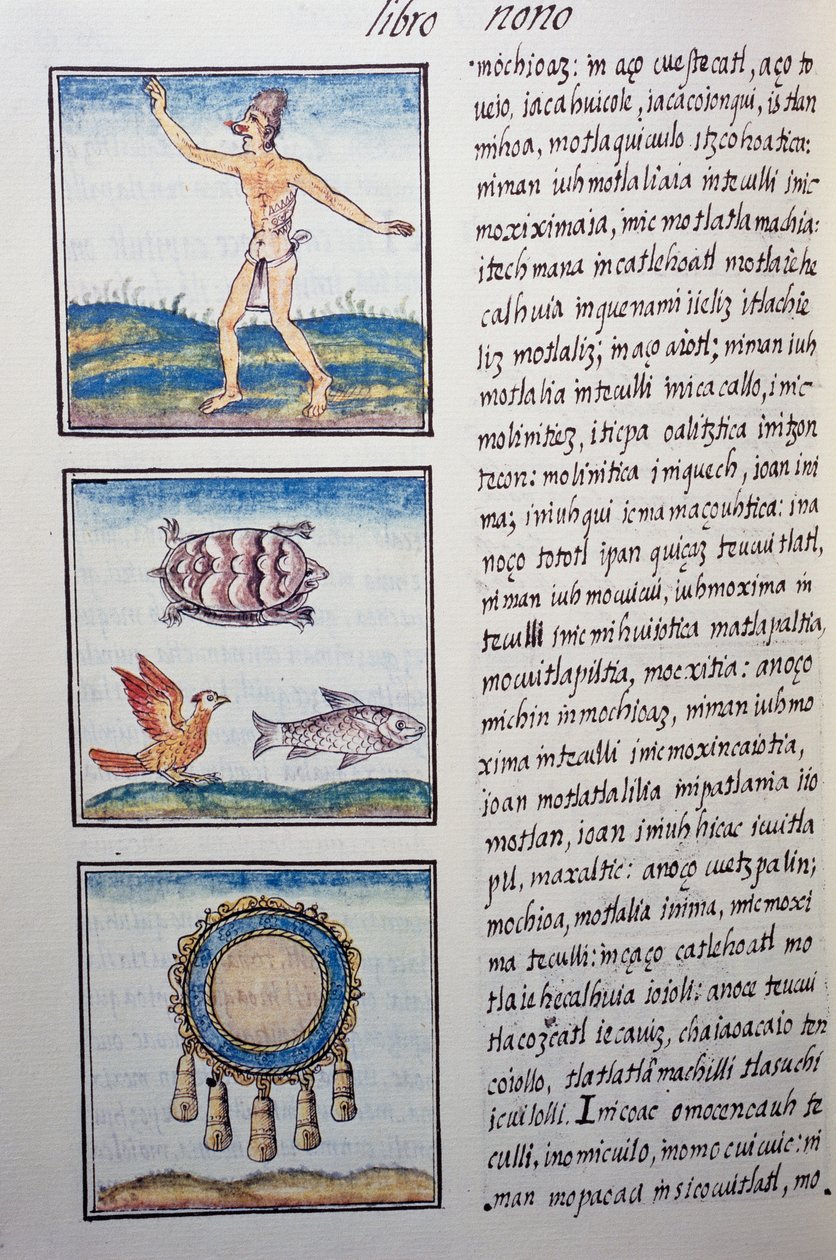 libro nono
mochioaz: in aço cuextecatl, aço to
veio, iacahuicole, iacacoionqui, ixtlan
mihoa, motlaquicuilo itzcohoatica:
niman iuh motlaliaia in teculli inic
moxiximaia, inic motlatlamachia:
itech mana in catlehoatl motlaiehe
calhuia in quenami iieliz itlachie
liz motlaliz; in aço aiotl; niman iuh
motlalia in teculli inic acallo, inic
molinitiez, iticpa oalitztica in itzon
tecon: molinitica in iquech, ioan in i
ma; in iuhqui ic mamaçouhtica: in a
noço tototl ipan quiçaz teucuitlatl,
niman iuh mocuicui, iuh moxima in
teculli inic mihuiiotica matlapaltia,
mocuitlapiltia, mocxitia: anoço
michin in mochioaz, niman iuh mo
xima in teculli inic moxincaiotia,
ioan motlatlalilia in ipatlania iio
motlan, ioan in iuh hicac icuitla
pil, maxaltic: anoço cuetzpalin;
mochioa, motlalia in ima, inic moxi
ma teculli: in çaço catlehoatl mo
tlaiehecalhuia ioioli: anoce teucui
tlacozcatl iecauiz, chaiaoacaio ten
coiollo, tlatlatlamachilli tlasuchi
icuilolli. Inicoac omocencauh te
culli, inomicuilo, inomocuicuic: ni
man mopacaci in sicocuitlatl, mo